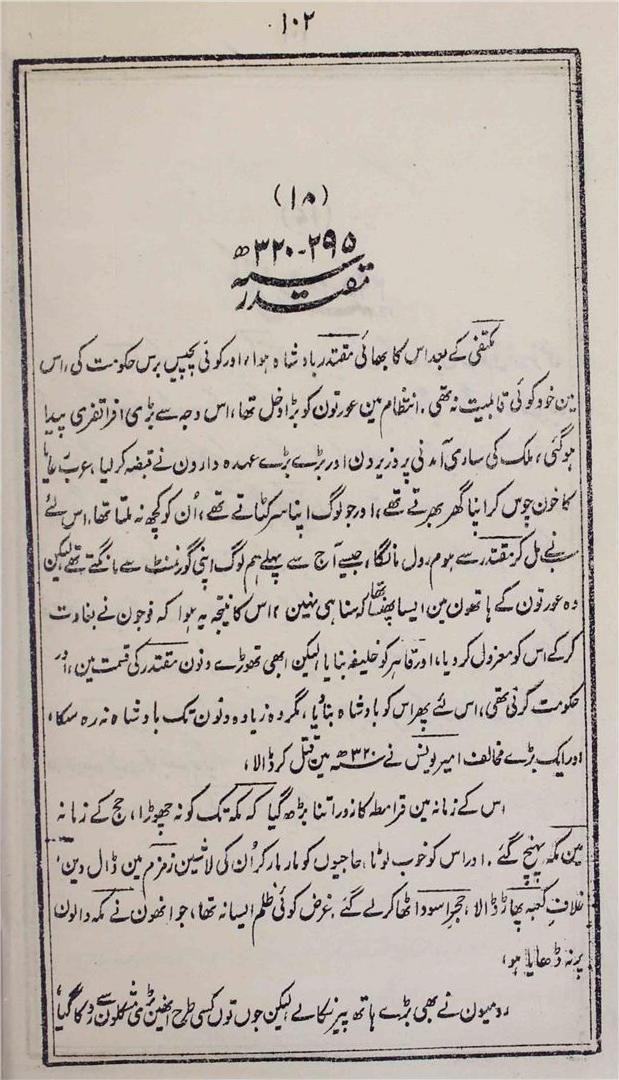 ۱۰۲
(۱۸)
۲۹۵-۳۲۰ھ
مقتدر
مکتفی کے بعد اس کا بھائی مقتدر بادشاہ ہوا، اور کوئی پچیس برس حکومت کی، اس
مین خود کوئی قابلیت نہ تھی۔ انتظام مین عورتون کو بڑا دخل تھا، اس وجہ سے بڑی افراتفری پیدا
ہوگئی، ملک کی ساری آمدنی پر وزیرون اور بڑے بڑے عہدہ دارون نے قبضہ کر لیا، غریب رعایا
کا خون چوس کر اپنا گھر بھرتے تھے، اور جو لوگ اپنا سر کٹاتے تھے، اُن کو کچھ نہ ملتا تھا۔ اس لئے
سب نے مل کر مقتدر سے ہوم رول مانگا، جیسے آج سے پہلے ہم لوگ اپنی گورنمنٹ سے مانگتے تھے، لیکن
وہ عورتون کے ہاتھون مین ایسا پھنسا تھا کہ سنا ہی نہین، اس کا نتیجہ یہ ہوا کہ فوجون نے بغاوت
کرکے اس کو معزول کر دیا، اور قاہر کو خلیفہ بنایا لیکن ابھی تھوڑے دنون مقتدر کی قسمت مین، اور
حکومت کرنی تھی، اس لئے پھر اس کو بادشاہ بنا دیا، مگر وہ زیادہ دنون تک بادشاہ نہ رہ سکا،
اور ایک بڑے مخالف امیر یونس نے ۳۲۰ھ مین قتل کر ڈالا،
اس کے زمانہ مین قرامطہ کا زور اتنا بڑھ گیا کہ مکہ تک کو نہ چھوڑا، حج کے زمانہ
مین مکہ پہنچ گئے۔ اور اس کو خوب لوٹا، حاجیوں کو مار مار کر اُن کی لاشین زمزم مین ڈال دین،
غلافِ کعبہ پھاڑ ڈالا، حجرِ اسود اٹھا کر لے گئے۔ غرض کوئی ظلم ایسا نہ تھا، جو انھون نے مکہ والون
پر نہ ڈھایا ہو،
رومیون نے بھی بڑے ہاتھ پیر نکالے لیکن جوں توں کسی طرح انھین بڑی مشکلون سے روکا گیا،